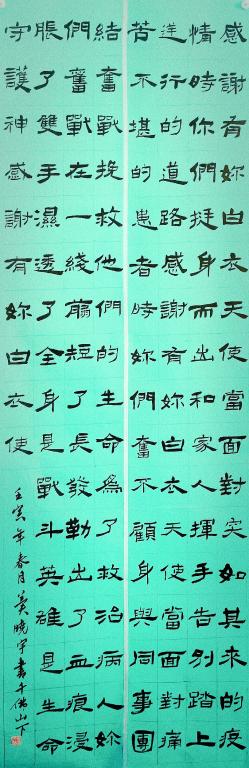 感謝有妳白衣天使當面對突如其來的疫
情時你們挺身而出和家人揮手告別踏上
逆行的道路感謝有妳白衣天使當面對痛
苦不堪的患者時妳們奮不顧身與同事團
結奮戰挽救他們的生命為了救治病人妳
們奮戰在一綫短了長發勒出了血痕浸
脹了雙手濕透了全身是戰斗英雄是生命
守護神感謝有妳白衣使
壬寅年春月姜曉書千佛山下